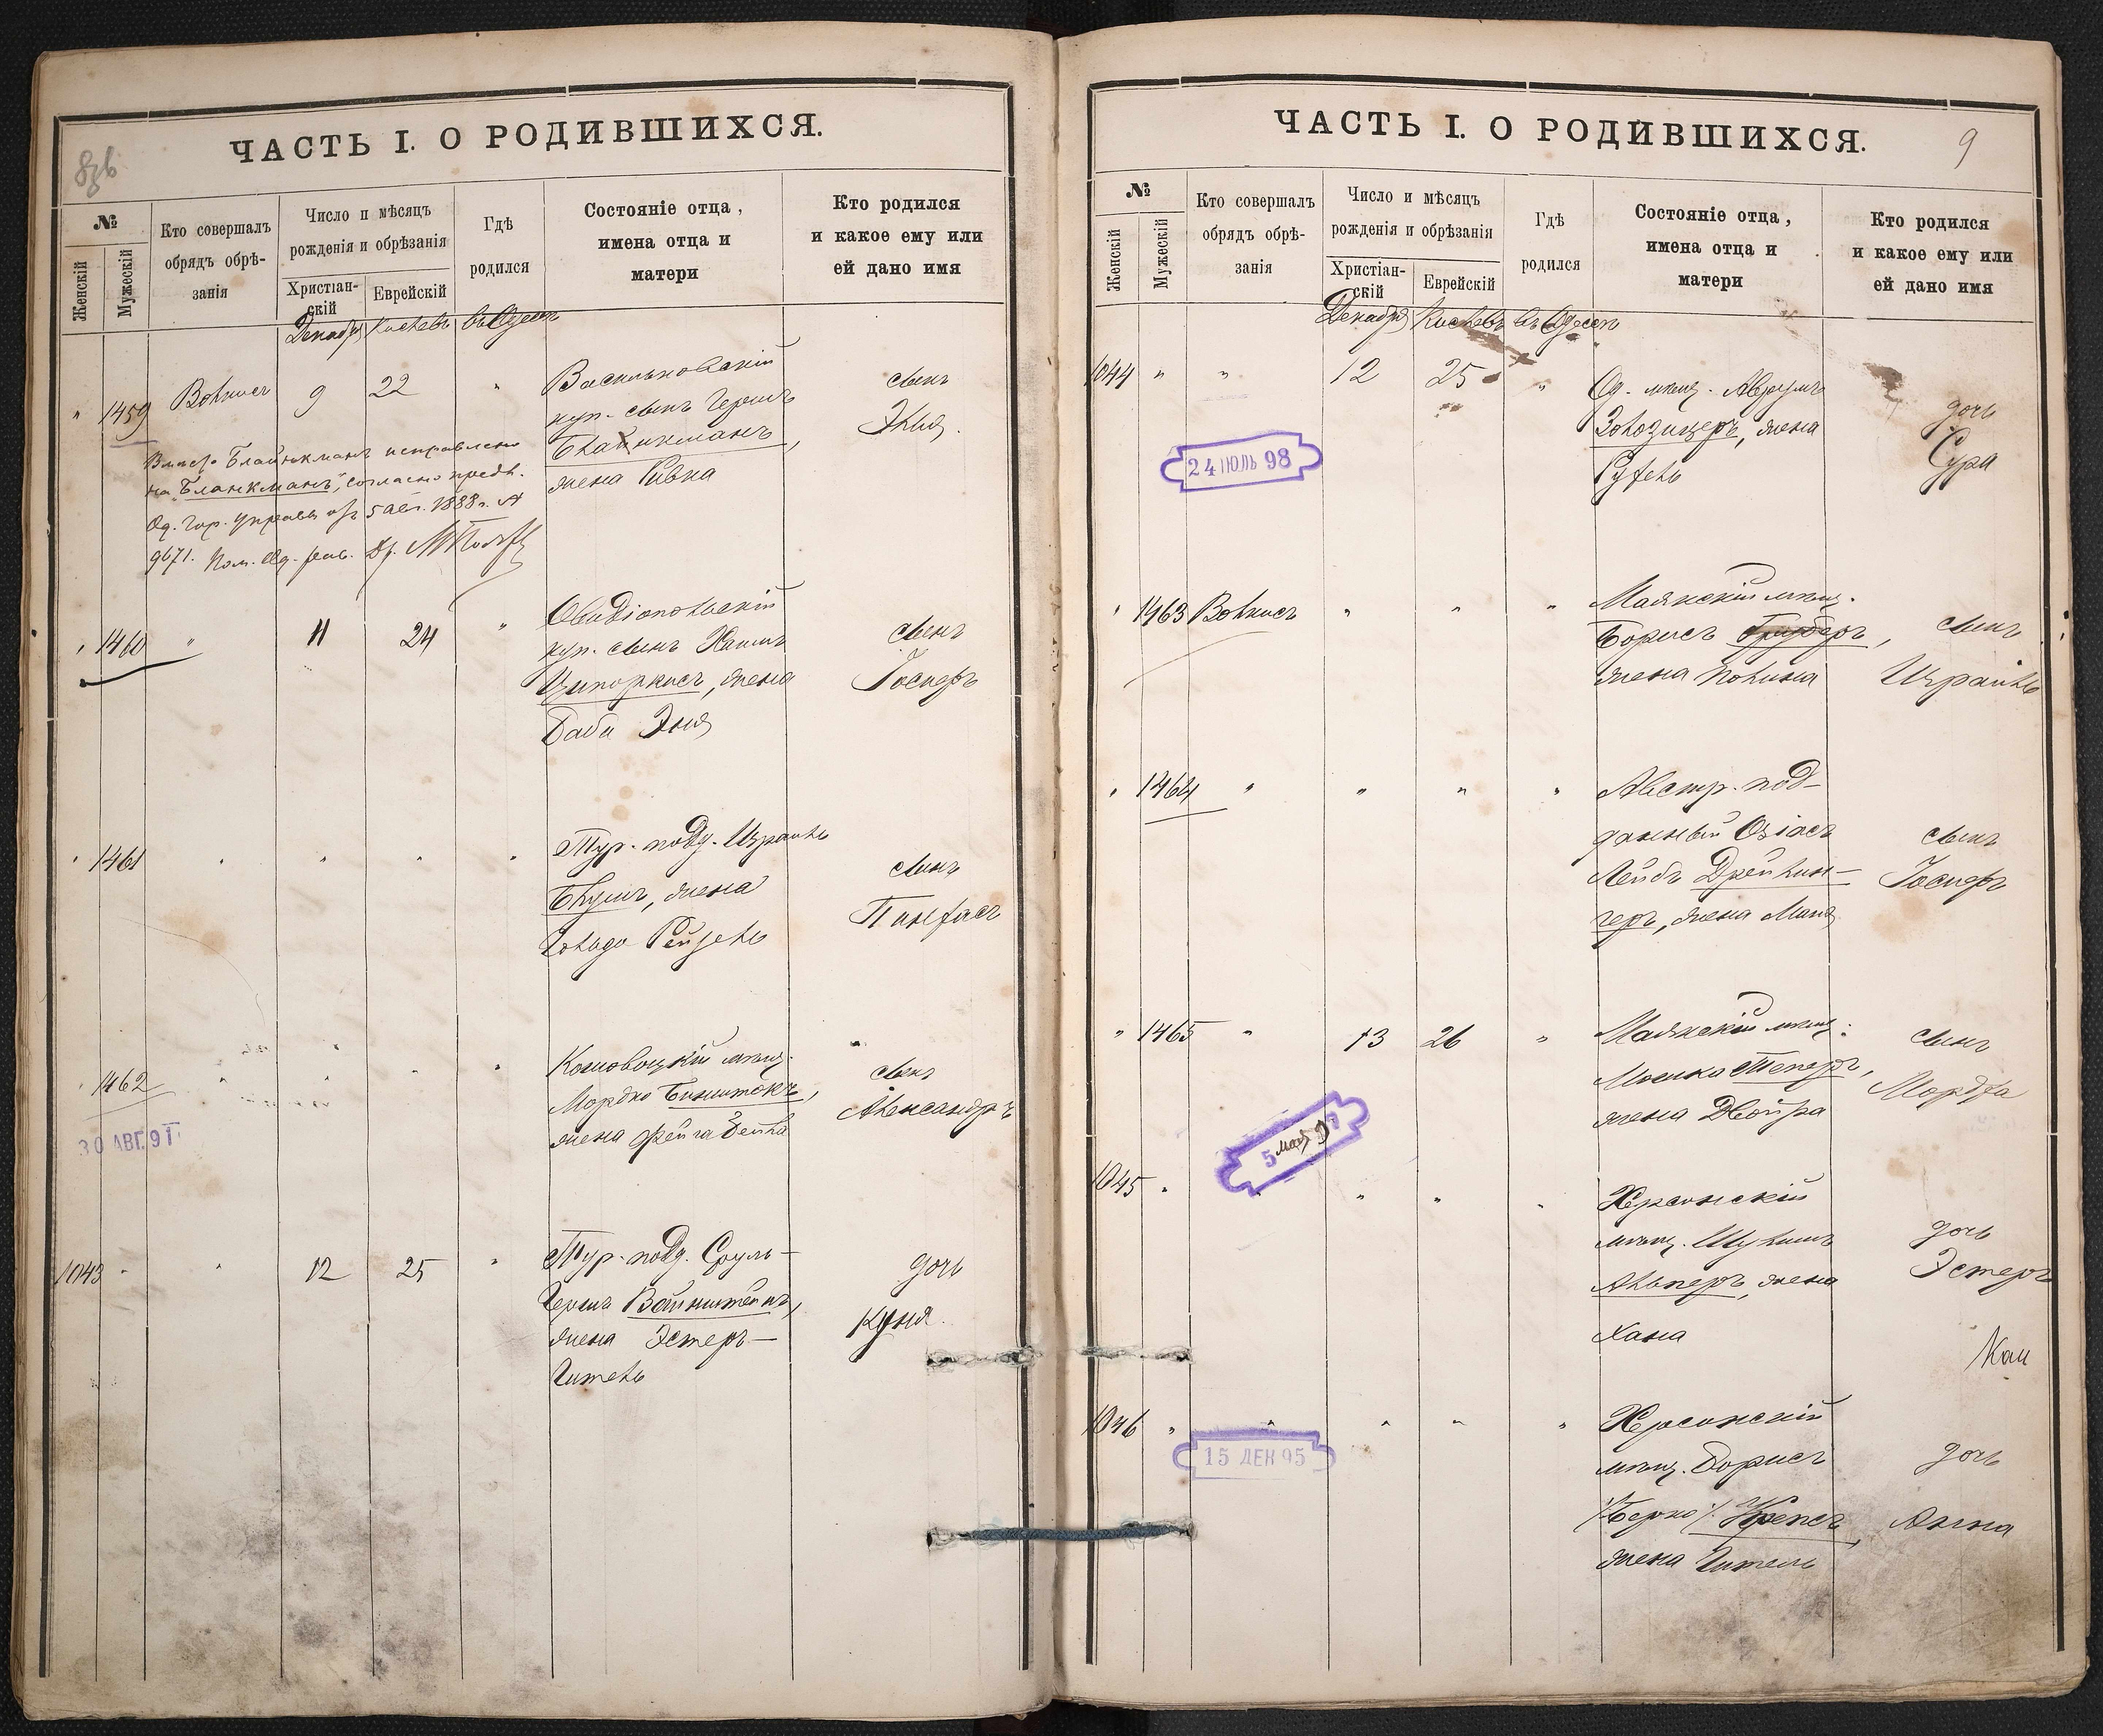 ЧАСТЬ I. О РОДИВШИХСЯ.
№
Женскій
Мужескій
Кто совершалъ
обрядъ обрѣ-
занія
Число и мѣсяцъ
рожденія и обрѣзанія
Христіан-
скій
Еврейскій
Гдѣ
родился
Состояніе отца,
имена отца и
матери
Кто родился
и какое ему или
ей дано имя
Декабрь Кислевъ въ Одессѣ
" 1459 Волкисъ 9 22 "
Васильковскій
куп. сынъ Гершъ
Блайнкманъ,
жена Ривка
сынъ
Элія.
Вмѣсто Блайнкманъ исправлено
на "Бланкманъ", согласно предп.
Од. Гор. Управы отъ 5 авг. 1888 г. №
9671. Пом. Од. рав. Др.
" 1460 " 11 24 "
Овидіопольскій
куп. сынъ Хаимъ
Ципоркисъ, жена
Баба Эня
сынъ
Іосифъ
" 1461 " " " "
Тур. подд. Израиль
Блумъ, жена
Голда Рейзель
сынъ
Пинхасъ
" 1462 " " " "
мѣщ.
Мордко Биништокъ,
жена Фейга Бейла
сынъ
Александръ
30 АВГ. 91
1043 " " 12 25 "
Тур. подд. Сруль-
Гершъ Вайнштейнъ,
жена Эстеръ-
Гитель
дочь
Куня.
ЧАСТЬ I. О РОДИВШИХСЯ.
9
№
Женскій
Мужескій
Кто совершалъ
обрядъ обрѣ-
занія
Число и мѣсяцъ
рожденія и обрѣзанія
Христіан-
скій
Еврейскій
Гдѣ
родился
Состояніе отца,
имена отца и
матери
Кто родился
и какое ему или
ей дано имя
Декабрь Кислевъ въ Одессѣ
1044 " " 12 25 "
Од. мѣщ. Аврумъ
Золозицеръ, жена
Рухель
дочь
Сура
24 ІЮЛЬ 98
" 1463 Волкисъ " " "
Маякскій мѣщ.
Борисъ Груберъ,
жена Полина
сынъ
Израиль
" 1464 " " " "
Австр. под-
данный Озіасъ
Лейбъ Дрейлин-
геръ, жена Маня
сынъ
Іосифъ
" 1465 " 13 26 "
Маякскій мѣщ.
Мошко Теперъ,
жена Двойра
сынъ
Мордха
5 мая 97
1045 " " " "
Херсонскій
мѣщ. Шулимъ
Альперъ, жена
Хана
дочь
Эстеръ
1046 " " " " "
Херсонскій
мѣщ. Борисъ
/Берко/ Крепсъ,
жена Гитель
дочь
Анна
15 ДЕК 95